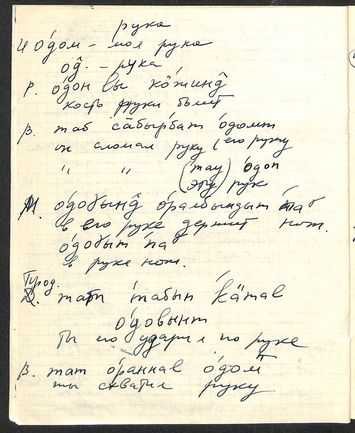 рука
И о́до̄м – моя рука
од̂. – рука
Р. о́до̄н вы ко̄́жинд̂
кость руки болит
В. таб сабырбат о́домт
он сломал руку (его руку
" " (тау) одоп
(эту) рук
М. о́до́ӷынд̂ о́ралбындыт паӷ
в его руке держит нож.
о́до́ӷыт паӷ
в руке нож.
Твор.
Д. тат та́бып ка́тав
о́до́вынт
ты его ударил по руке
В. тат о́раннав о́до̄м
ты схватил руку